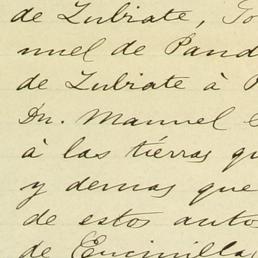 de Zubiate, Jo
nuel de Pand
de Zubiate à P
Dn. Manuel
à las tierras qu
y demas que
de estos auto
de Encinilla